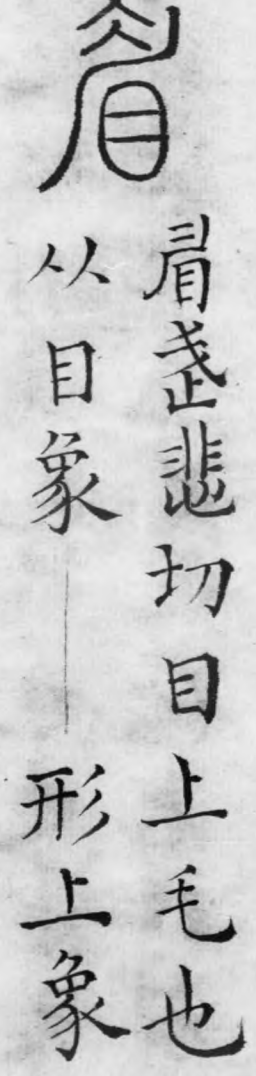 眉
眉武悲切目上毛也
从目象｜形上象